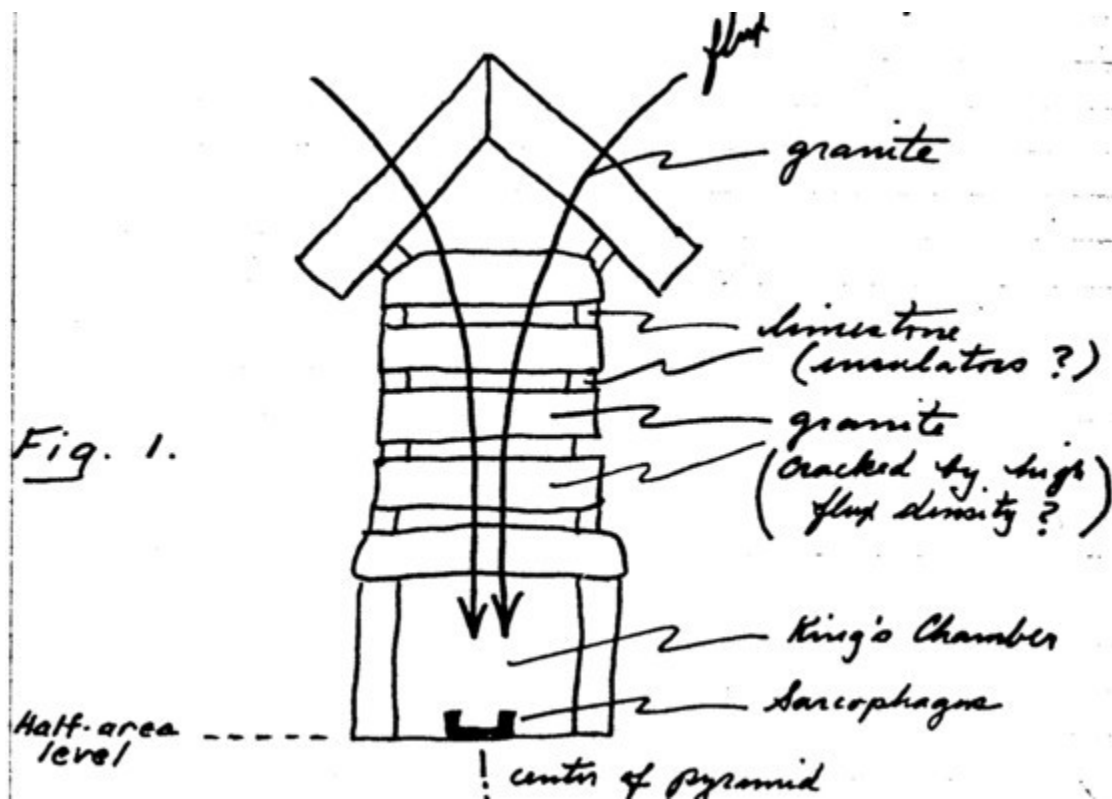 flux
granite
limestone
(insulators ?)
granite
(cracked by high
flux density ?)
Fig. 1.
King's Chamber
Sarcophagus
Half-area
level
center of pyramid